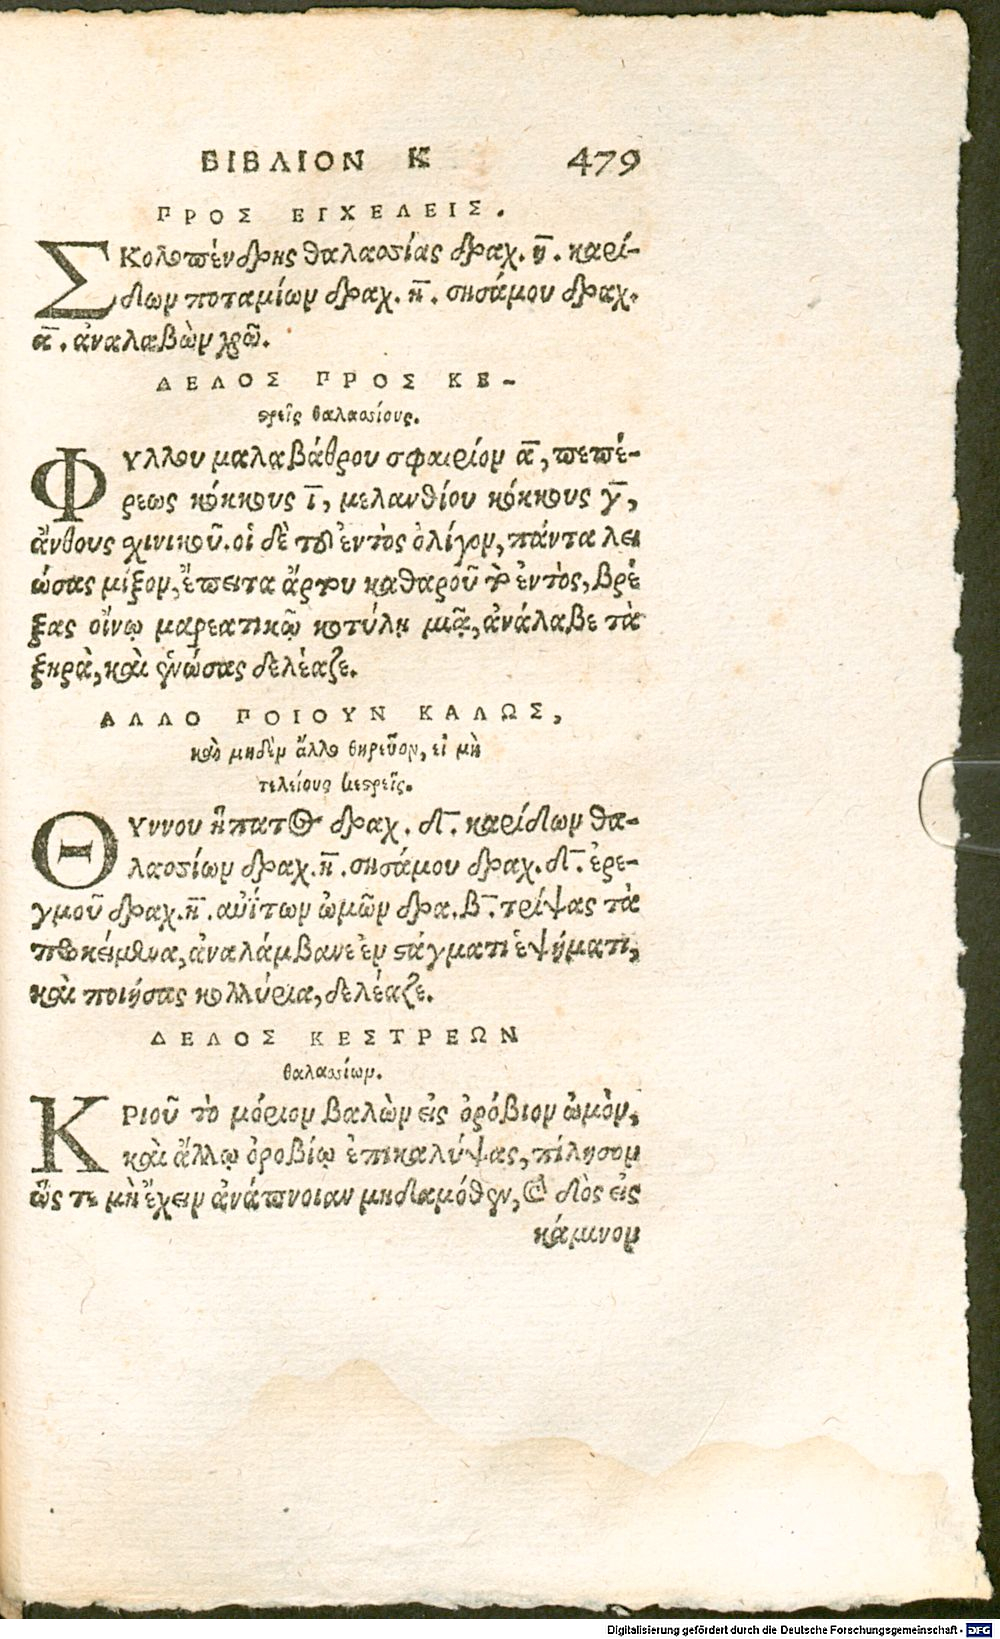 ΒΙΒΛΙΟΝ Κ 479
ΠΡΟΣ ΕΓΧΕΛΕΙΣ.
ΣΚολοπένδρης θαλασσίας δραχ. η̅. καρί-
δίων ποταμίων δραχ. η̅. σησάμου δραχ.
α̅. ἀναλαβὼν χρῶ.
ΔΕΛΟΣ ΠΡΟΣ ΚΕ-
στρεῖς θαλασσίους.
ΦΥλλου μαλαβάθρου σφαιρίον α̅, πεπέ-
ρεως κόκκους ι̅, μελανθίου κόκκους γ̅,
ἄνθους χινικοῦ. οἱ δὲ τοῦ ἐντὸς ὀλίγον, πάντα λει
ώσας μίξον, ἔπειτα ἄρτου καθαροῦ τὸ ἐντὸς, βρέ
ξας οἴνῳ μαρεατικῷ κοτύλῃ μιᾷ, ἀνάλαβε τὰ
ξηρὰ, καὶ γνώσας δελέαζε.
ΑΛΛΟ ΠΟΙΟΥΝ ΚΑΛΩΣ,
καὶ μηδὲν ἄλλο θηρεῦον, εἰ μὴ
τελείους κεστρεῖς.
ΘΥννου ἥπατος δραχ. δ̅. καρίδίων θα-
λασσίων δραχ. η̅. σησάμου δραχ. δ̅. ἐρε-
γμοῦ δραχ. η̅. αὐΐτων ὠμῶν δρα. β̅. τρίψας τὰ
προκείμενα, ἀναλάμβανε ἐν στάγματι ἑψήματι,
καὶ ποιήσας κολλύρια, δελέαζε.
ΔΕΛΟΣ ΚΕΣΤΡΕΩΝ
θαλασσίων.
ΚΡιοῦ τὸ μόριον βαλὼν εἰς ὀρόβιον ὠμὸν,
καὶ ἄλλῳ ὀροβίῳ ἐπικαλύψας, πίλησον
ὥς τε μὴ ἔχειν ἀνάπνοιαν μηδαμόθεν, καὶ δὸς εἰς
κάμινον
Digitalisierung gefördert durch die Deutsche Forschungsgemeinschaft - DFG